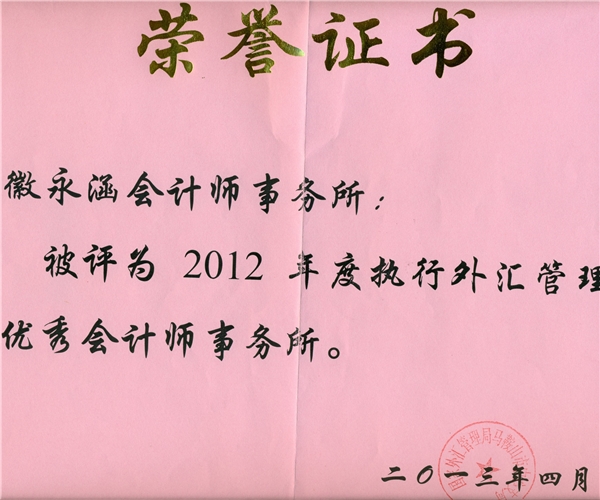 荣誉证书
徽永涵会计师事务所：
被评为 2012 年度执行外汇管理
优秀会计师事务所。
外汇管理局马鞍山市
二〇一三年四月